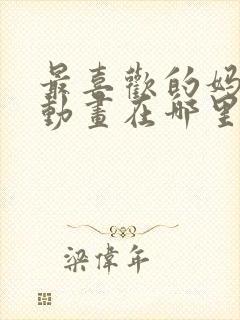 最喜歡的媽
動畫在哪里
梁偉年